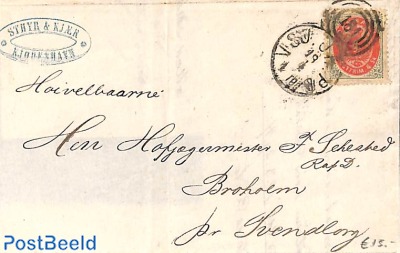 STHYR & KJÆR
KJØBENHAVN
Hoivelbaarne
Herr Hofjægermester F.
R af D.
Broholm
pr Svendborg
€15.-
PostBeeld